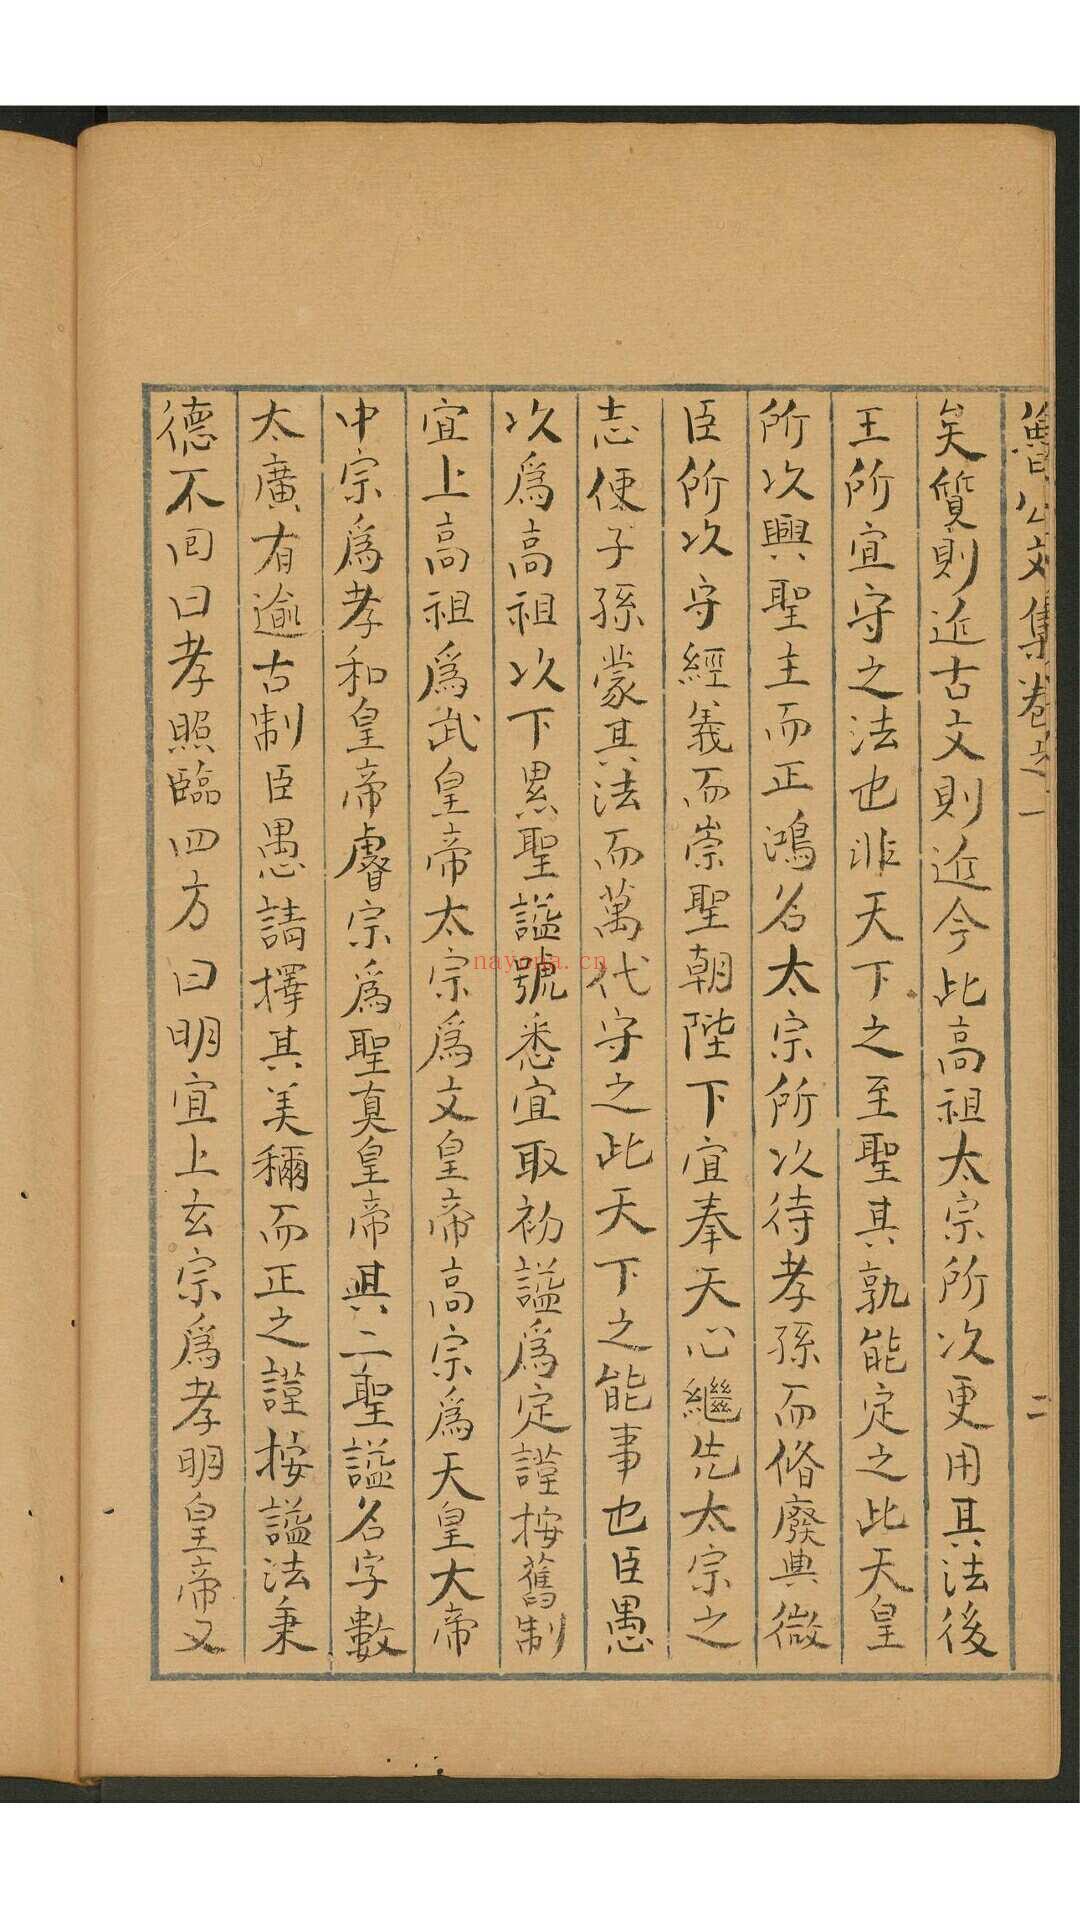 魯公文集卷之一
二
矣質則近古文則近今此高祖太宗所次更用其法後
王所宜守之法也非天下之至聖其孰能定之此天皇
所次興聖主而正鴻名太宗所次待孝孫而脩廢典微
臣所次守經義而崇聖朝陛下宜奉天心繼先太宗之
志便子孫蒙其法而萬代守之此天下之能事也臣愚
次為高祖次下累聖謚號悉宜取初謚為定謹按舊制
宜上高祖為武皇帝太宗為文皇帝高宗為天皇大帝
中宗為孝和皇帝睿宗為聖真皇帝其二聖謚名字數
太廣有逾古制臣愚請擇其美稱而正之謹按謚法秉
德不回曰孝照臨四方曰明宜上玄宗為孝明皇帝又
nayona.cn